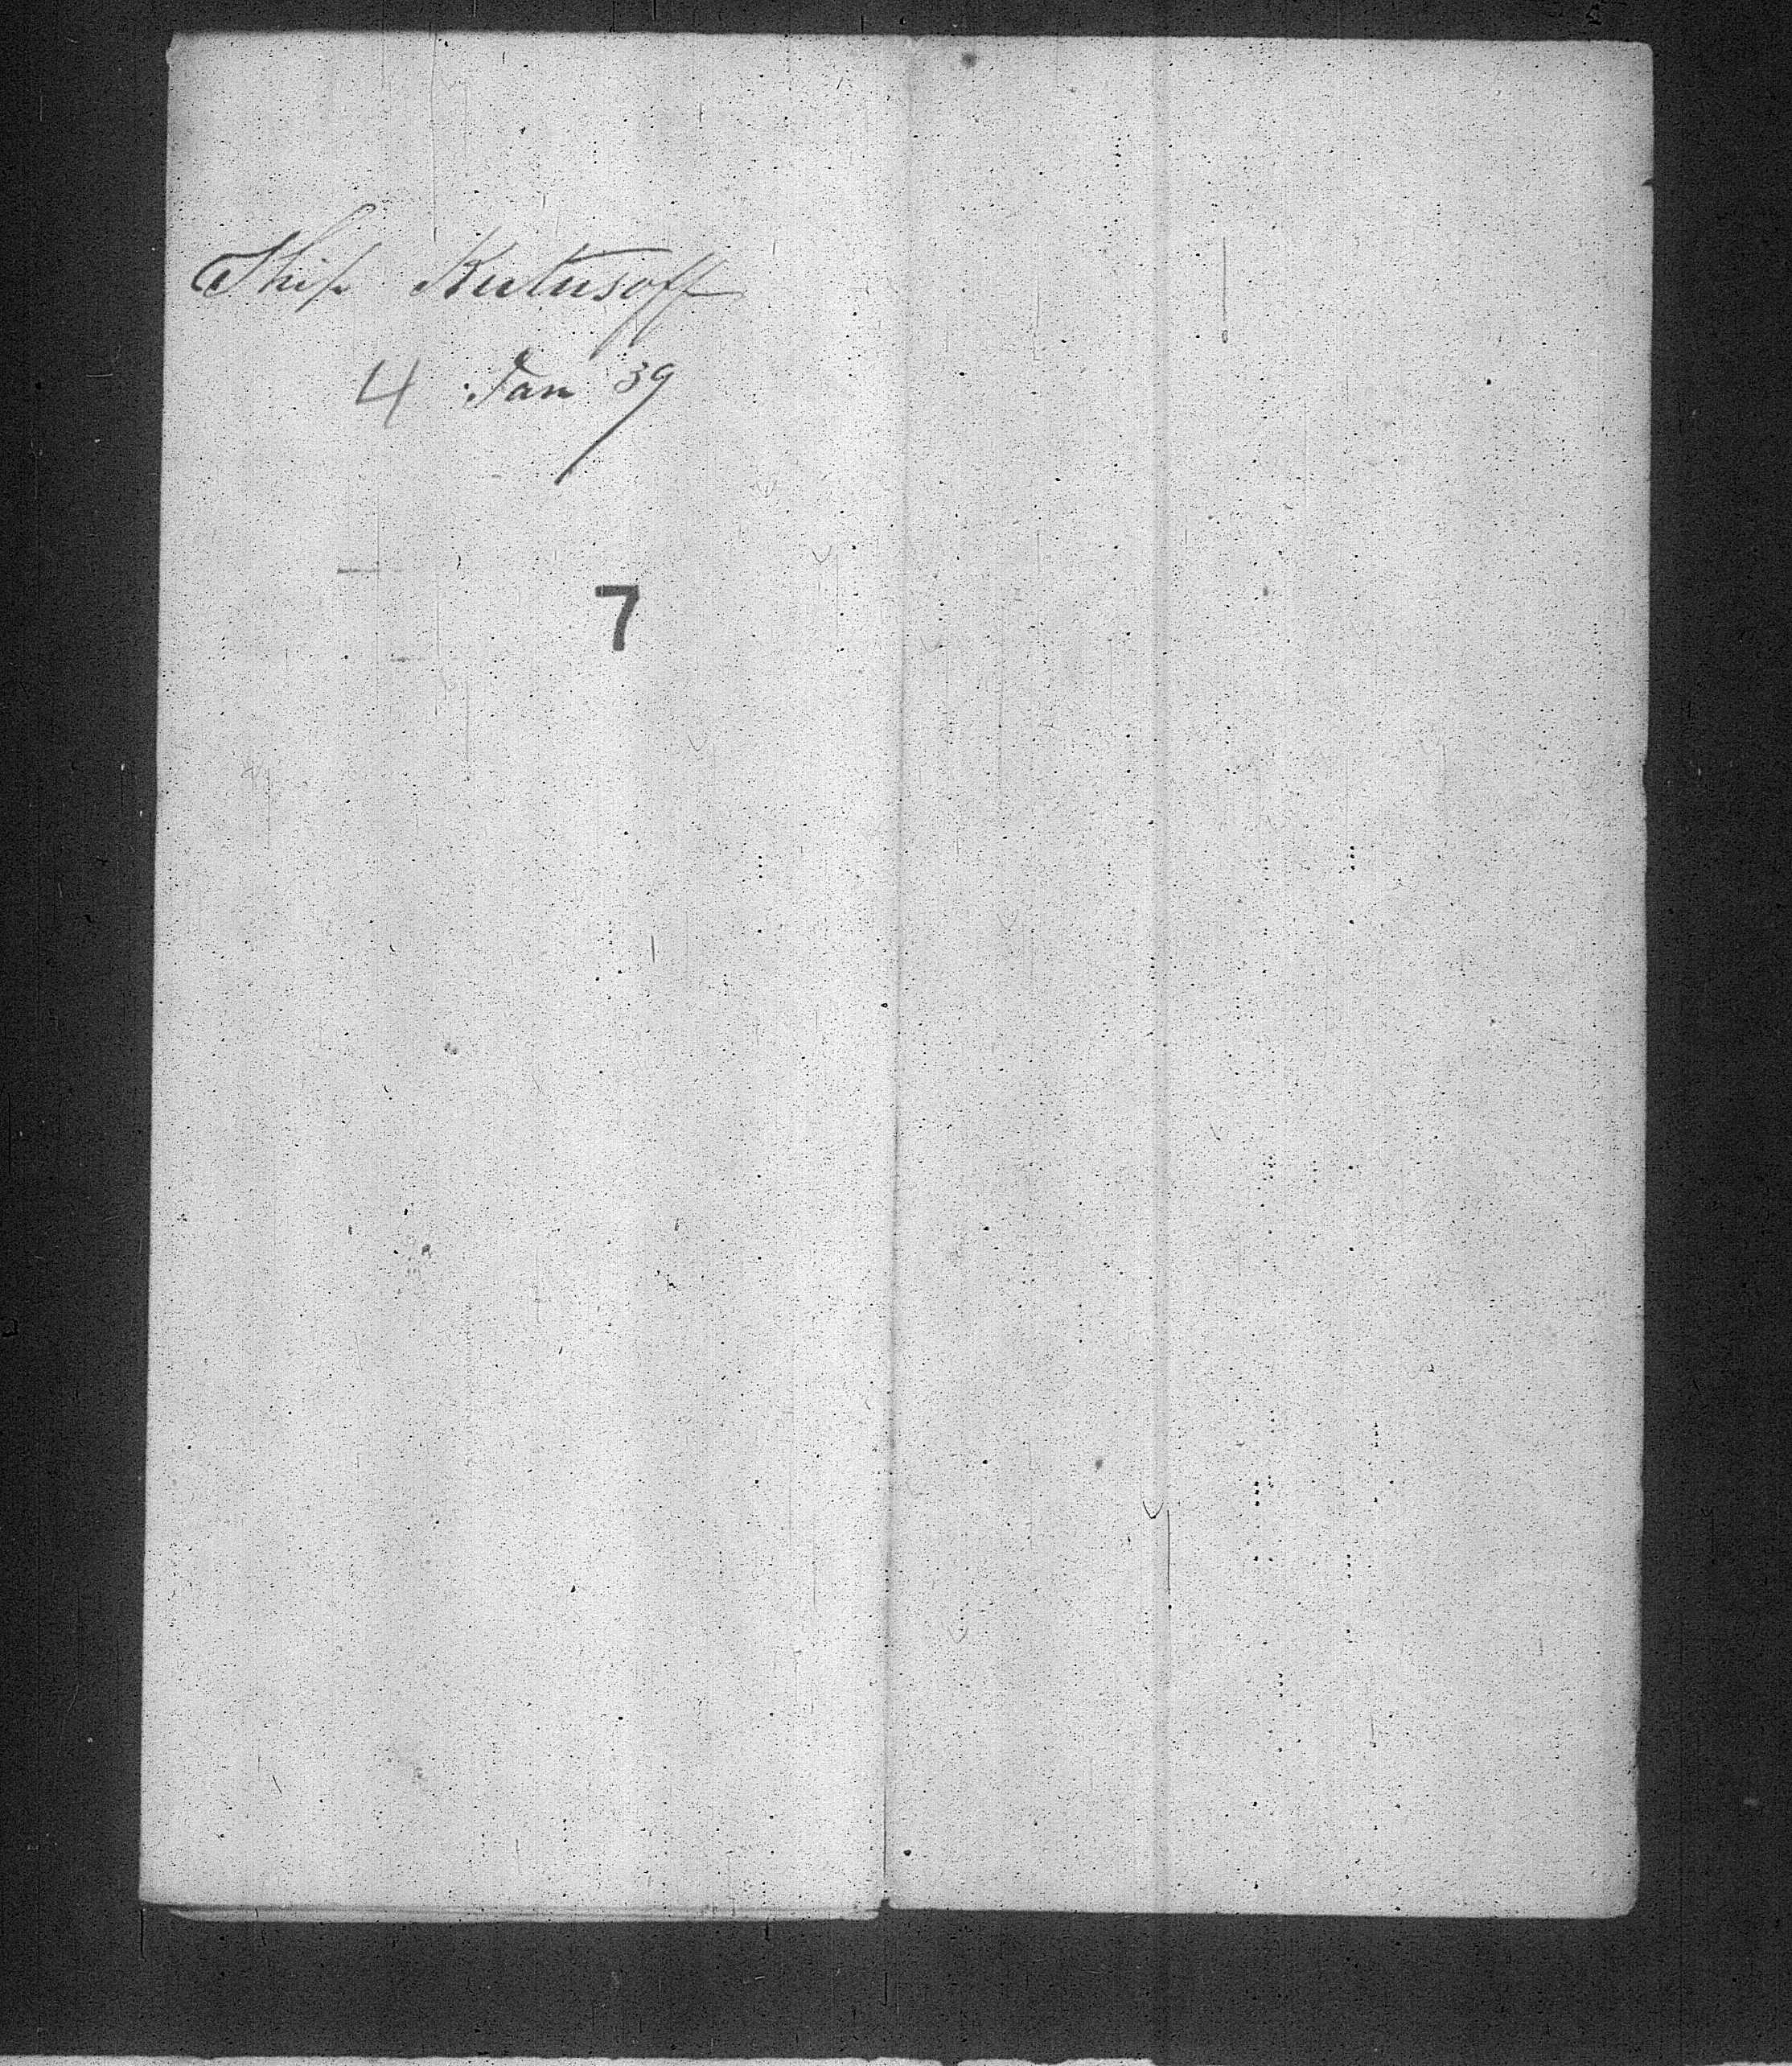 Ship Kutusoff
4 Jan 39
7